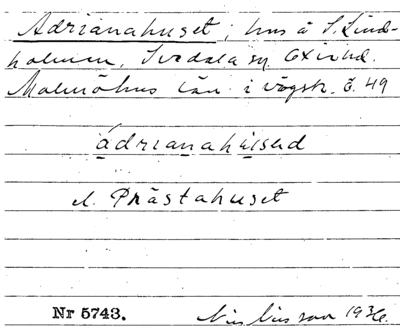 Adrianahuset; hus å S. Lind-
holmen, Svedala sn. Oxie hd.
Malmöhus län i vägsk. å 49
ádrianahu̇sed
el. Prästahuset
Nr 5743. Nils Nilsson 1936.